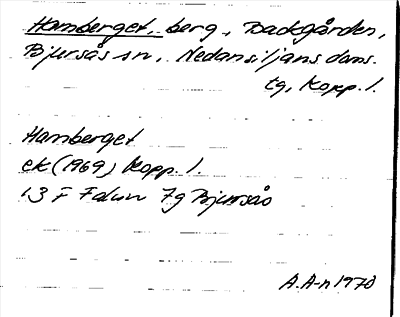 Hamberget, berg, Backgården,
Bjursås sn, Nedansiljans doms.
tg, Kopp. l.
Hamberget
ek (1969) Kopp. l.
13 F Falun 7g Bjursås
A.A-n 1970